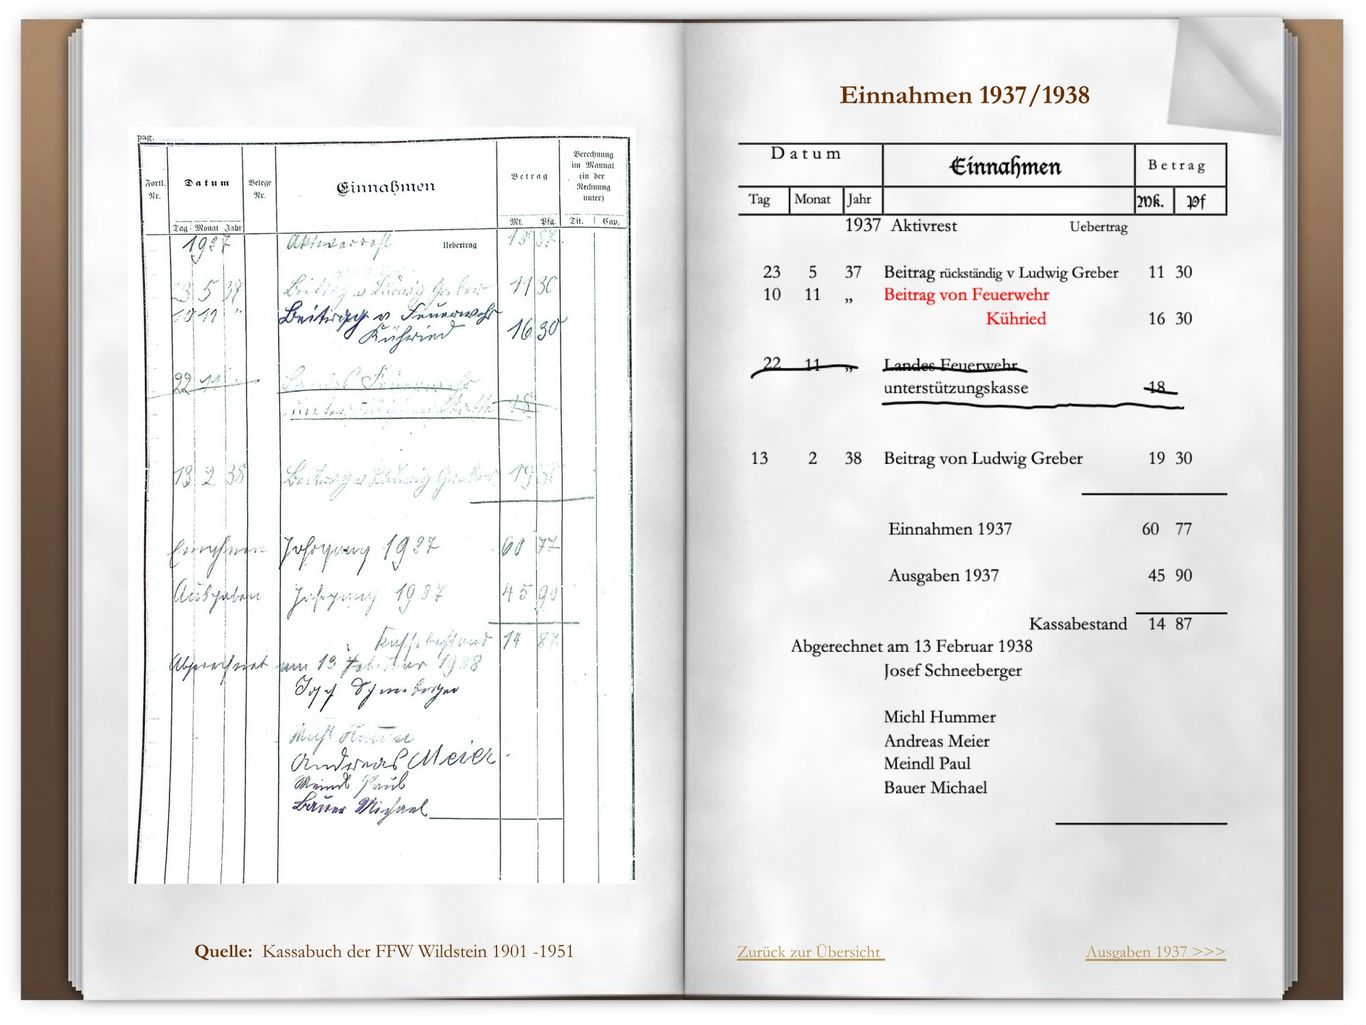 pag.
Fortl. Nr.
Datum
Belege Nr.
Einnahmen
Betrag
Berechnung im Manual (in der Rechnung unter)
Tag Monat Jahr
Mk. Pfg. Tit. Cap.
1937 Aktivrest Uebertrag 13 87
23 5 37 Beitrag v Ludwig Greber 11 30
10 11 " Beitrag v Feuerwehr
Kühried 16 30
22 11 Landes Feuerwehr
unterstützungskasse 18
13 2 38 Beitrag v Ludwig Greber 19 30
Einnahmen Jahrgang 1937 60 77
Ausgaben Jahrgang 1937 45 90
Kassabestand 14 87
Abgerechnet am 13 Februar 1938
Josef Schneeberger
Andreas Meier
Meindl Paul
Bauer Michael
Quelle: Kassabuch der FFW Wildstein 1901 -1951
Einnahmen 1937/1938
Datum Einnahmen Betrag
Tag Monat Jahr Mk. Pf
1937 Aktivrest Uebertrag
23 5 37 Beitrag rückständig v Ludwig Greber 11 30
10 11 „ Beitrag von Feuerwehr
Kühried 16 30
22 11 „ Landes Feuerwehr
unterstützungskasse 18
13 2 38 Beitrag von Ludwig Greber 19 30
Einnahmen 1937 60 77
Ausgaben 1937 45 90
Kassabestand 14 87
Abgerechnet am 13 Februar 1938
Josef Schneeberger
Michl Hummer
Andreas Meier
Meindl Paul
Bauer Michael
Zurück zur Übersicht
Ausgaben 1937 >>>